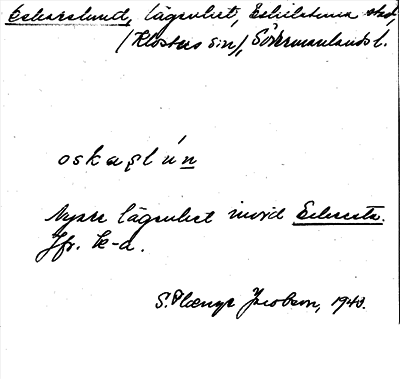 Oskarslund, lägenhet, Eskilstuna stad,
(Klosters sn), Södermanlands l.
oskaslún
Nyare lägenhet invid
Jfr. k-a.
S. Jacobson, 1940.